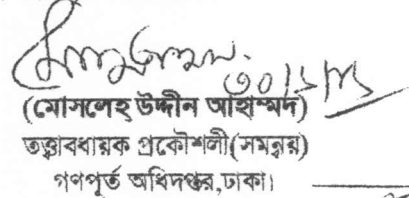 ৩০/১/১১
(মোসলেহ উদ্দীন আহাম্মদ)
তত্ত্বাবধায়ক প্রকৌশলী(সমন্বয়)
গণপূর্ত অধিদপ্তর,ঢাকা।